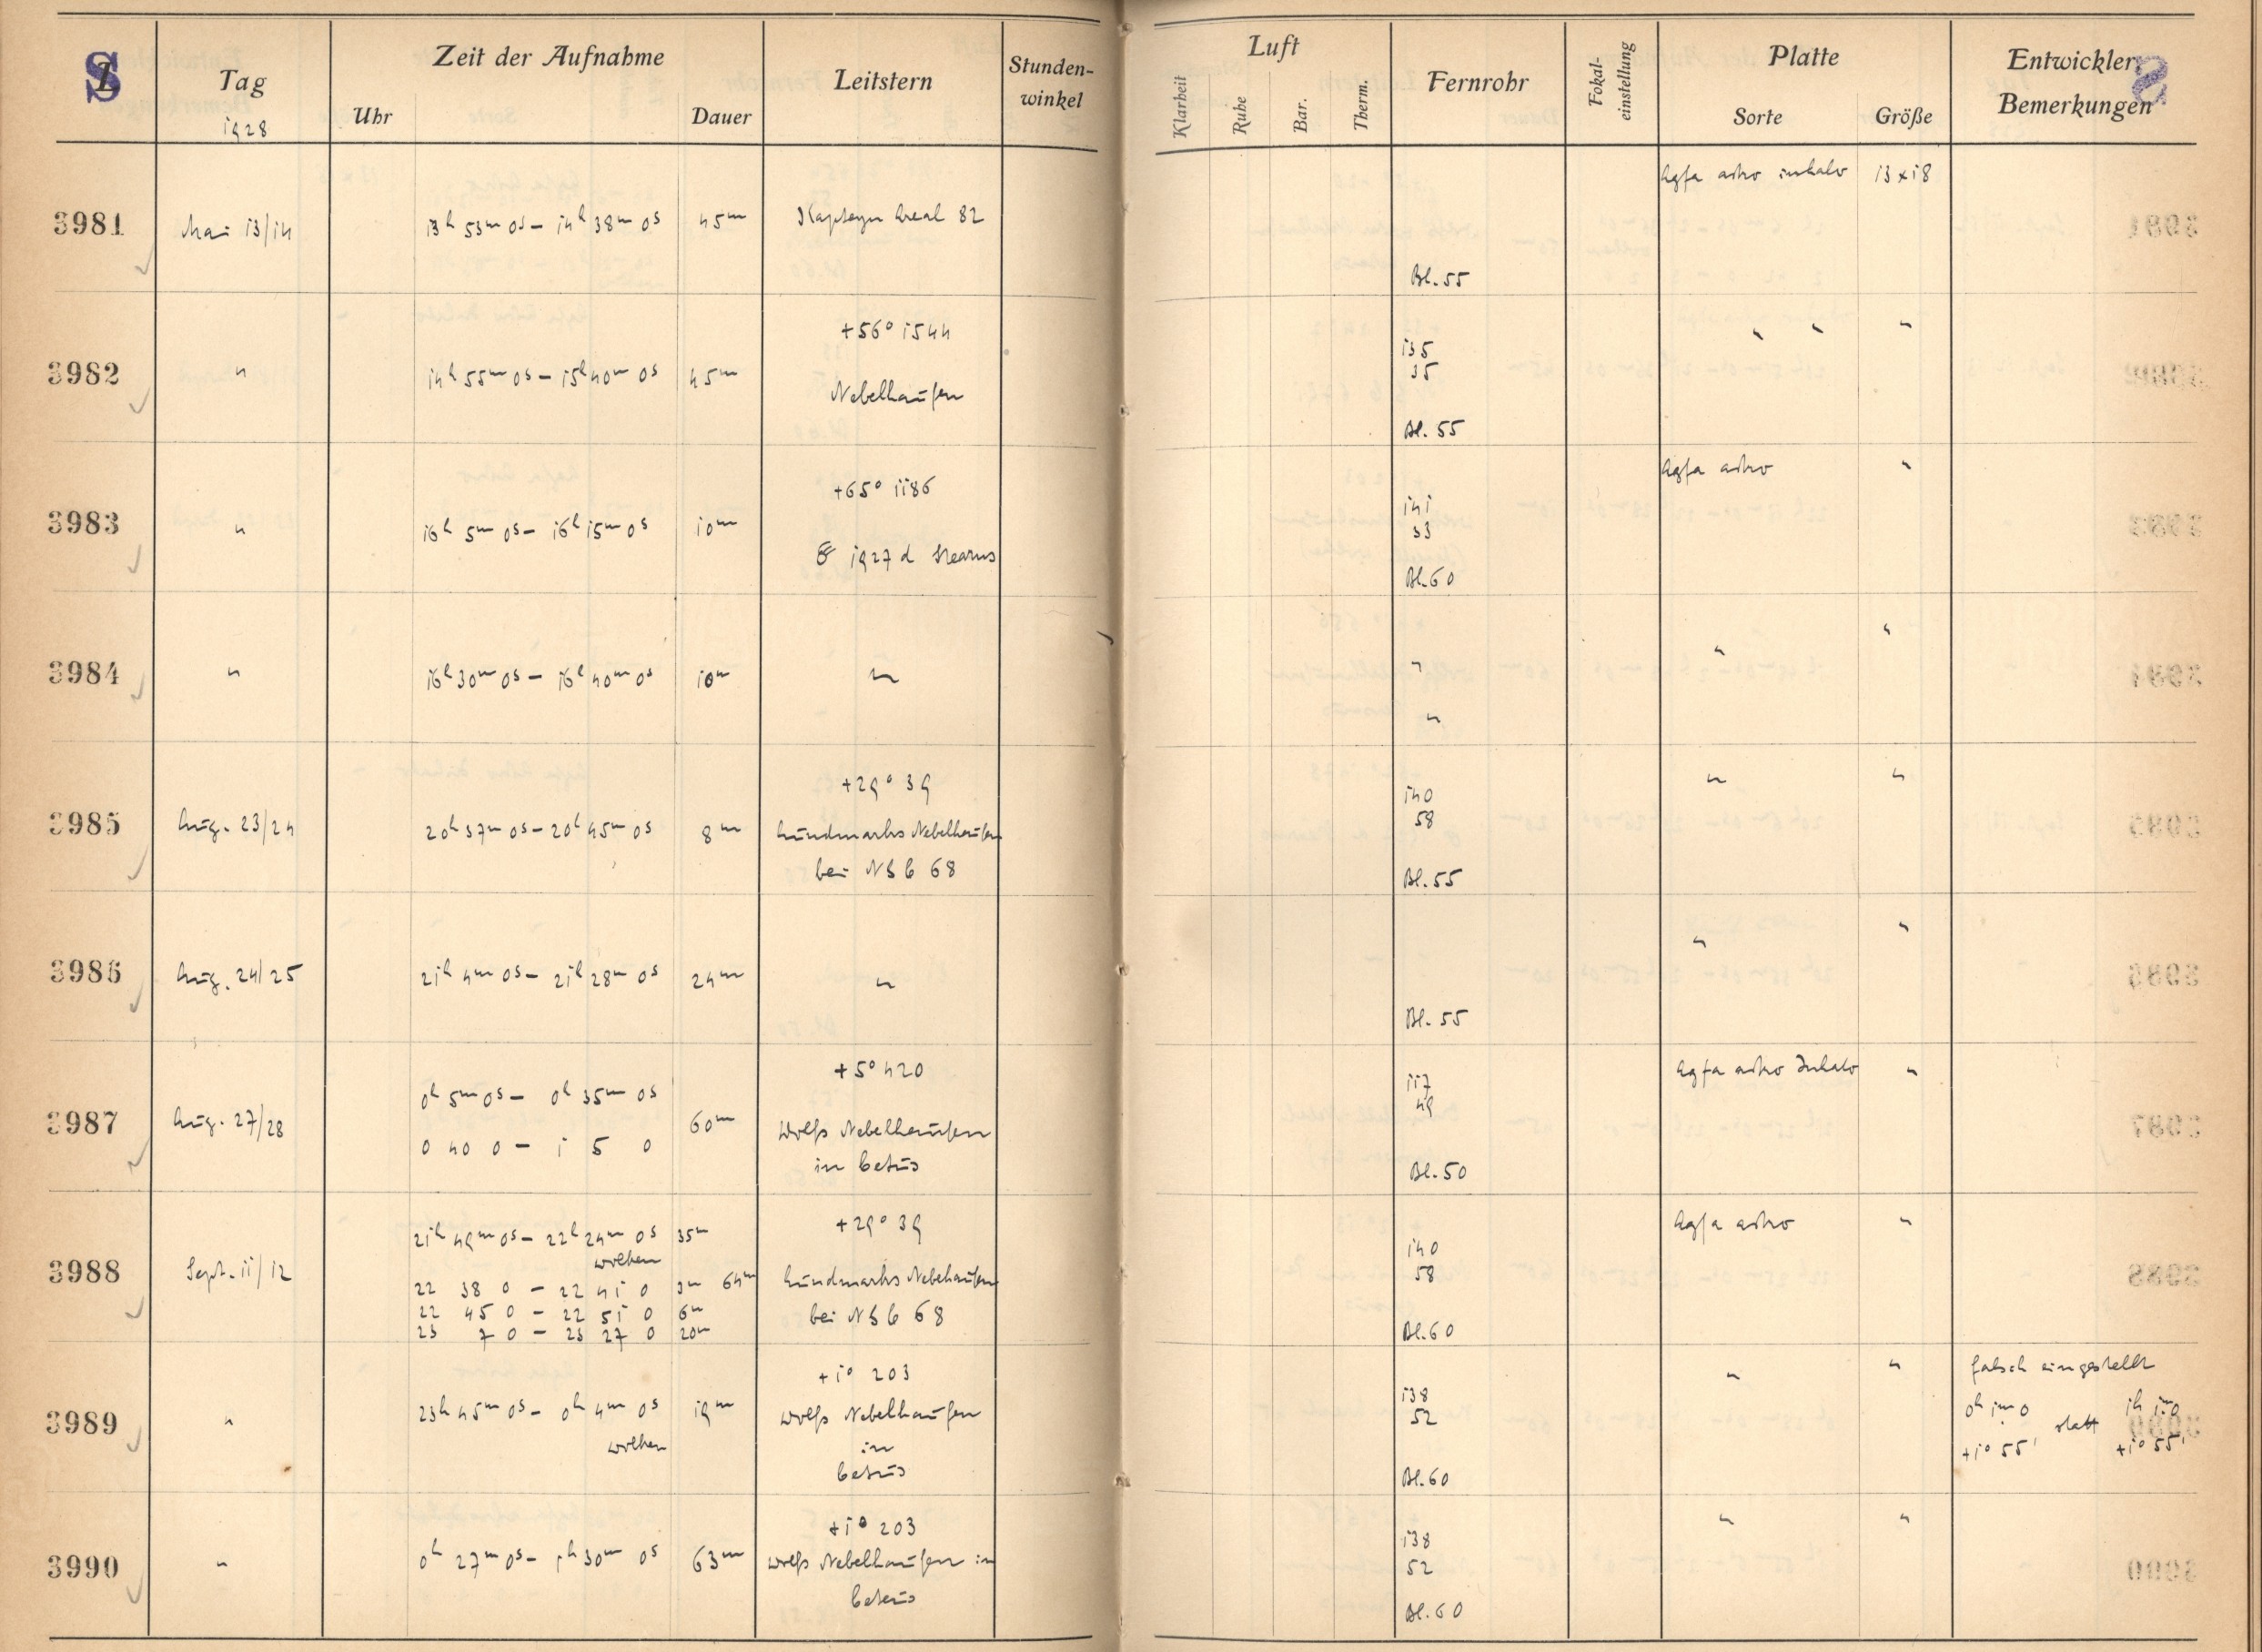 S
Tag
1928
Zeit der Aufnahme
Uhr
Dauer
Leitstern
Stunden-
winkel
Luft
Klarheit
Ruhe
Bar.
Therm.
Fernrohr
Fokal-
einstellung
Platte
Sorte
Größe
Entwickler,
Bemerkungen
S
3981 Mai 13/14 13h 53m 0s – 14h 38m 0s 45m Kapteyn Areal 82
Bl. 55
Agfa astro inhalo 13x18
3982 " 14h 55m 0s – 15h 40m 0s 45m
+56° 1544
Nebelhaufen
135
35
Bl. 55
" " "
3983 " 16h 5m 0s – 16h 15m 0s 10m
+65° 1186
1927 d Stearns
141
33
Bl. 60
Agfa astro "
3984 " 16h 30m 0s – 16h 40m 0s 10m "
"
"
" "
3985 Aug. 23/24 20h 37m 0s – 20h 45m 0s 8m
+29° 39
Lundmarks Nebelhaufen
bei NGC 68
140
58
Bl. 55
" "
3986 Aug. 24/25 21h 4m 0s – 21h 28m 0s 24m "
Bl. 55
" "
3987 Aug. 27/28
0h 5m 0s – 0h 35m 0s
0 40 0 – 1 5 0
60m
+5° 420
Wolfs Nebelhaufen
in Cetus
117
49
Bl. 50
Agfa astro Inhalo "
3988 Sept. 11/12
21h 49m 0s – 22h 24m 0s 35m
Wolken
22 38 0 – 22 41 0 3m 64m
22 45 0 – 22 51 0 6m
23 7 0 – 23 27 0 20m
+29° 39
Lundmarks Nebelhaufen
bei NGC 68
140
58
Bl. 60
Agfa astro "
3989 " 23h 45m 0s – 0h 4m 0s 19m
Wolken
+1° 203
Wolfs Nebelhaufen
in
Cetus
138
52
Bl. 60
" "
falsch eingestellt
0h 1m.0 statt 1h 1m.0
+1° 55' +1° 55'
3990 " 0h 27m 0s – 1h 30m 0s 63m
+1° 203
Wolfs Nebelhaufen in
Cetus
138
52
Bl. 60
" "